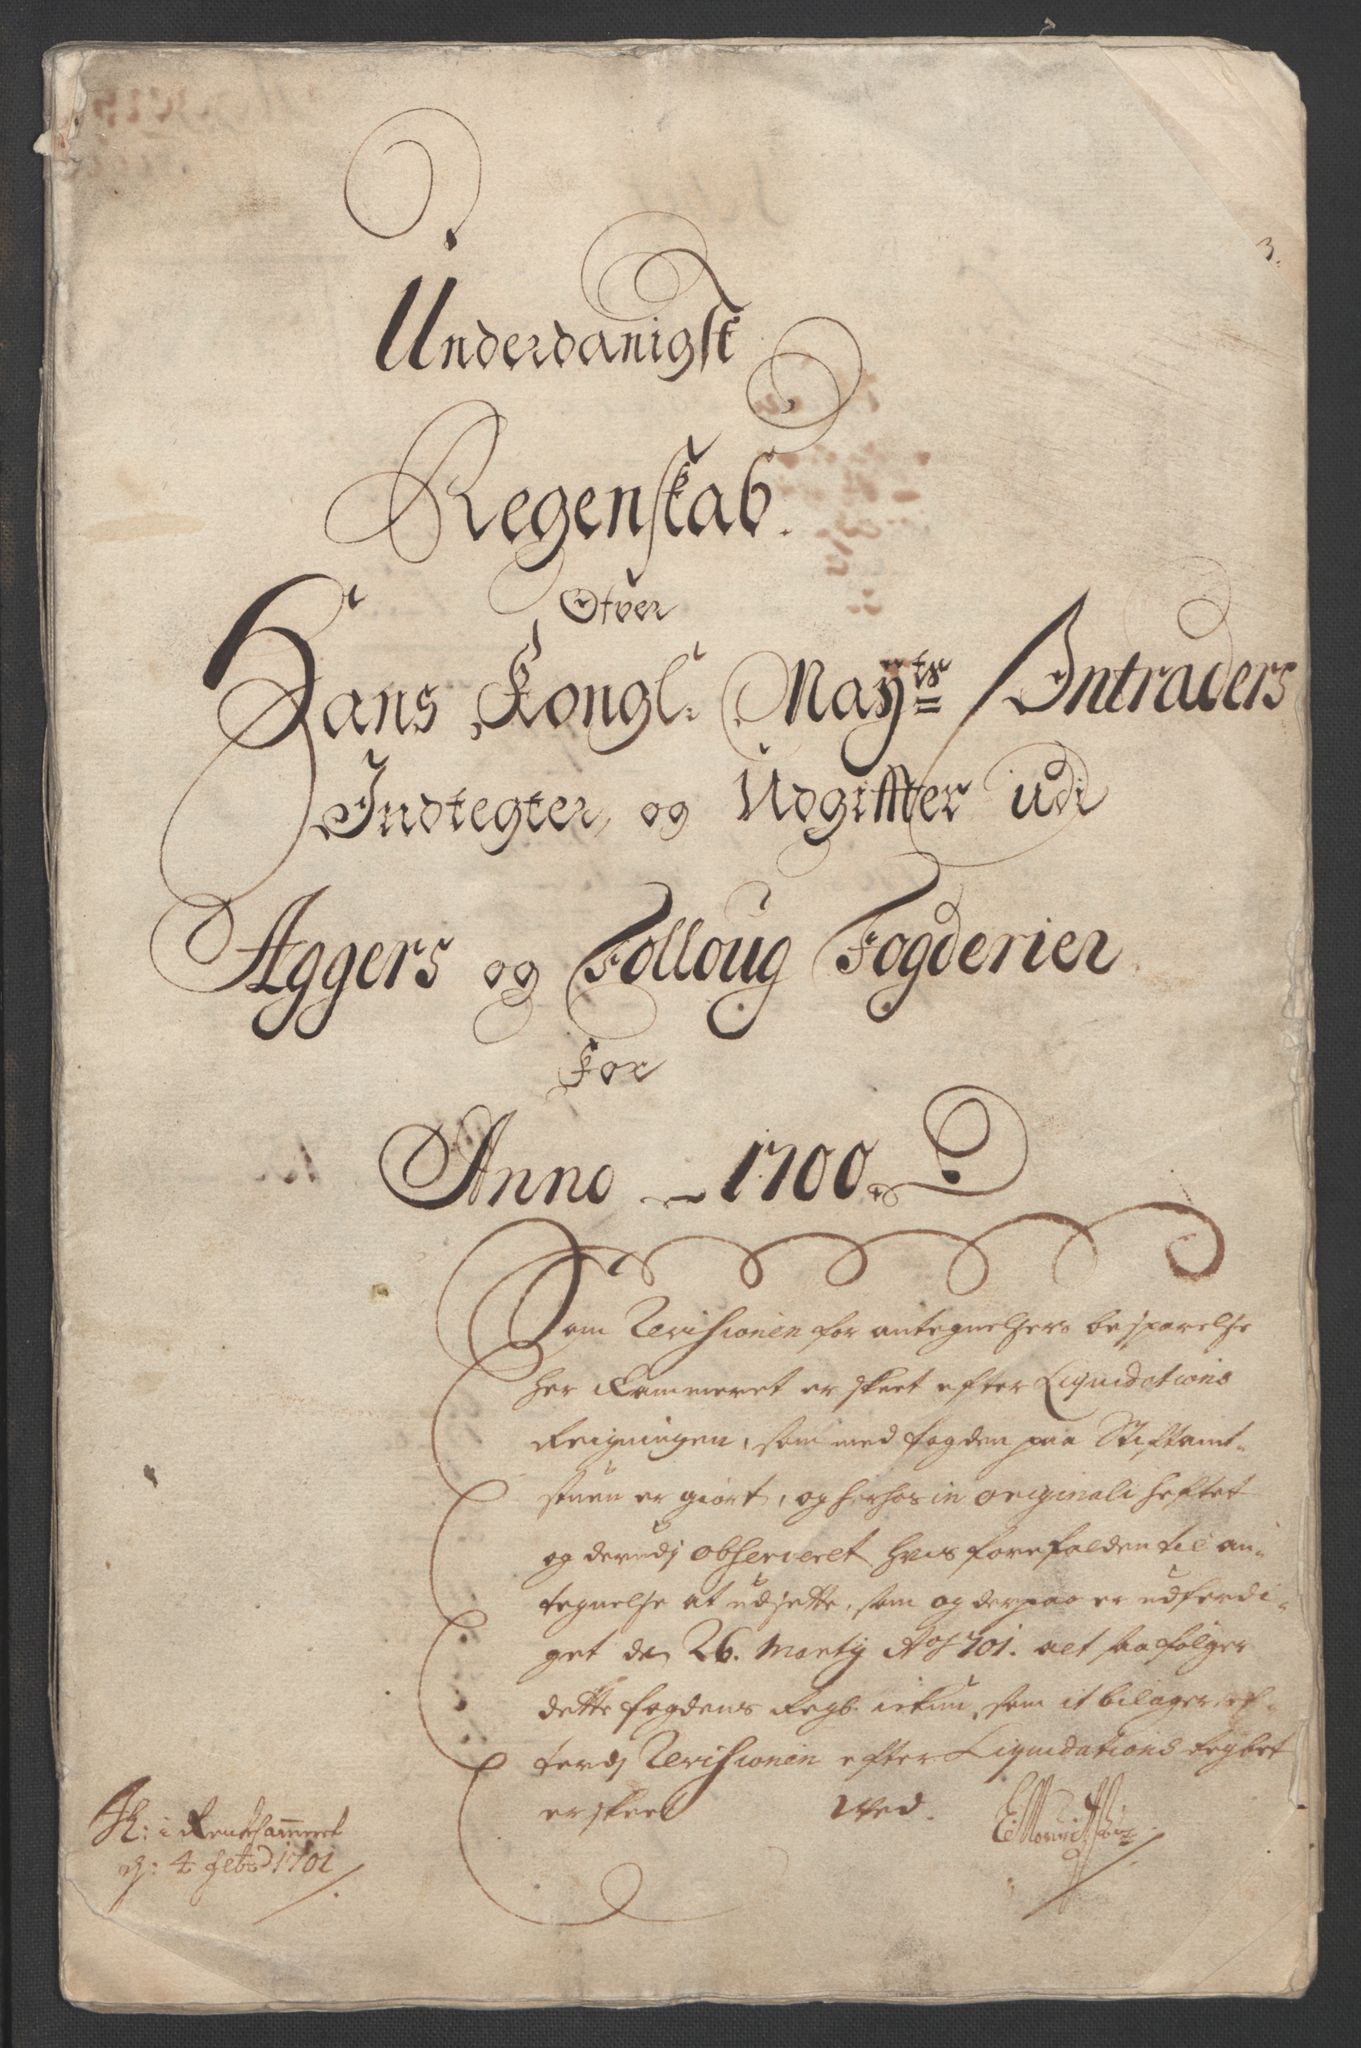 3.
Underdanigst
Regenskab.
Ofver
Hans Kongl: Mayts Intraders
Indtegter, og Udgiffter udi
Aggers og Folloug Fogderier
For
Anno 1700
Som Revisionen for antegnelsers besparelse
her i Cammeret er skeet efter Liquidations
Reigningen, som med fogden paa Stiftamt-
stuen er giort, og herhos in originali heftet
og derudj observeret hvis forefalden til an-
tegnelse at udsette, som og derpaa er udferdi-
get den 26. Martij Ao 1701. alt saa følger
dette fogdens Regb. ickun, som it bilager, ef-
terdj Revisionen efter Liquidations Regbet
er skeet Ved.
i Rentekammeret
d: 4 febr 1701